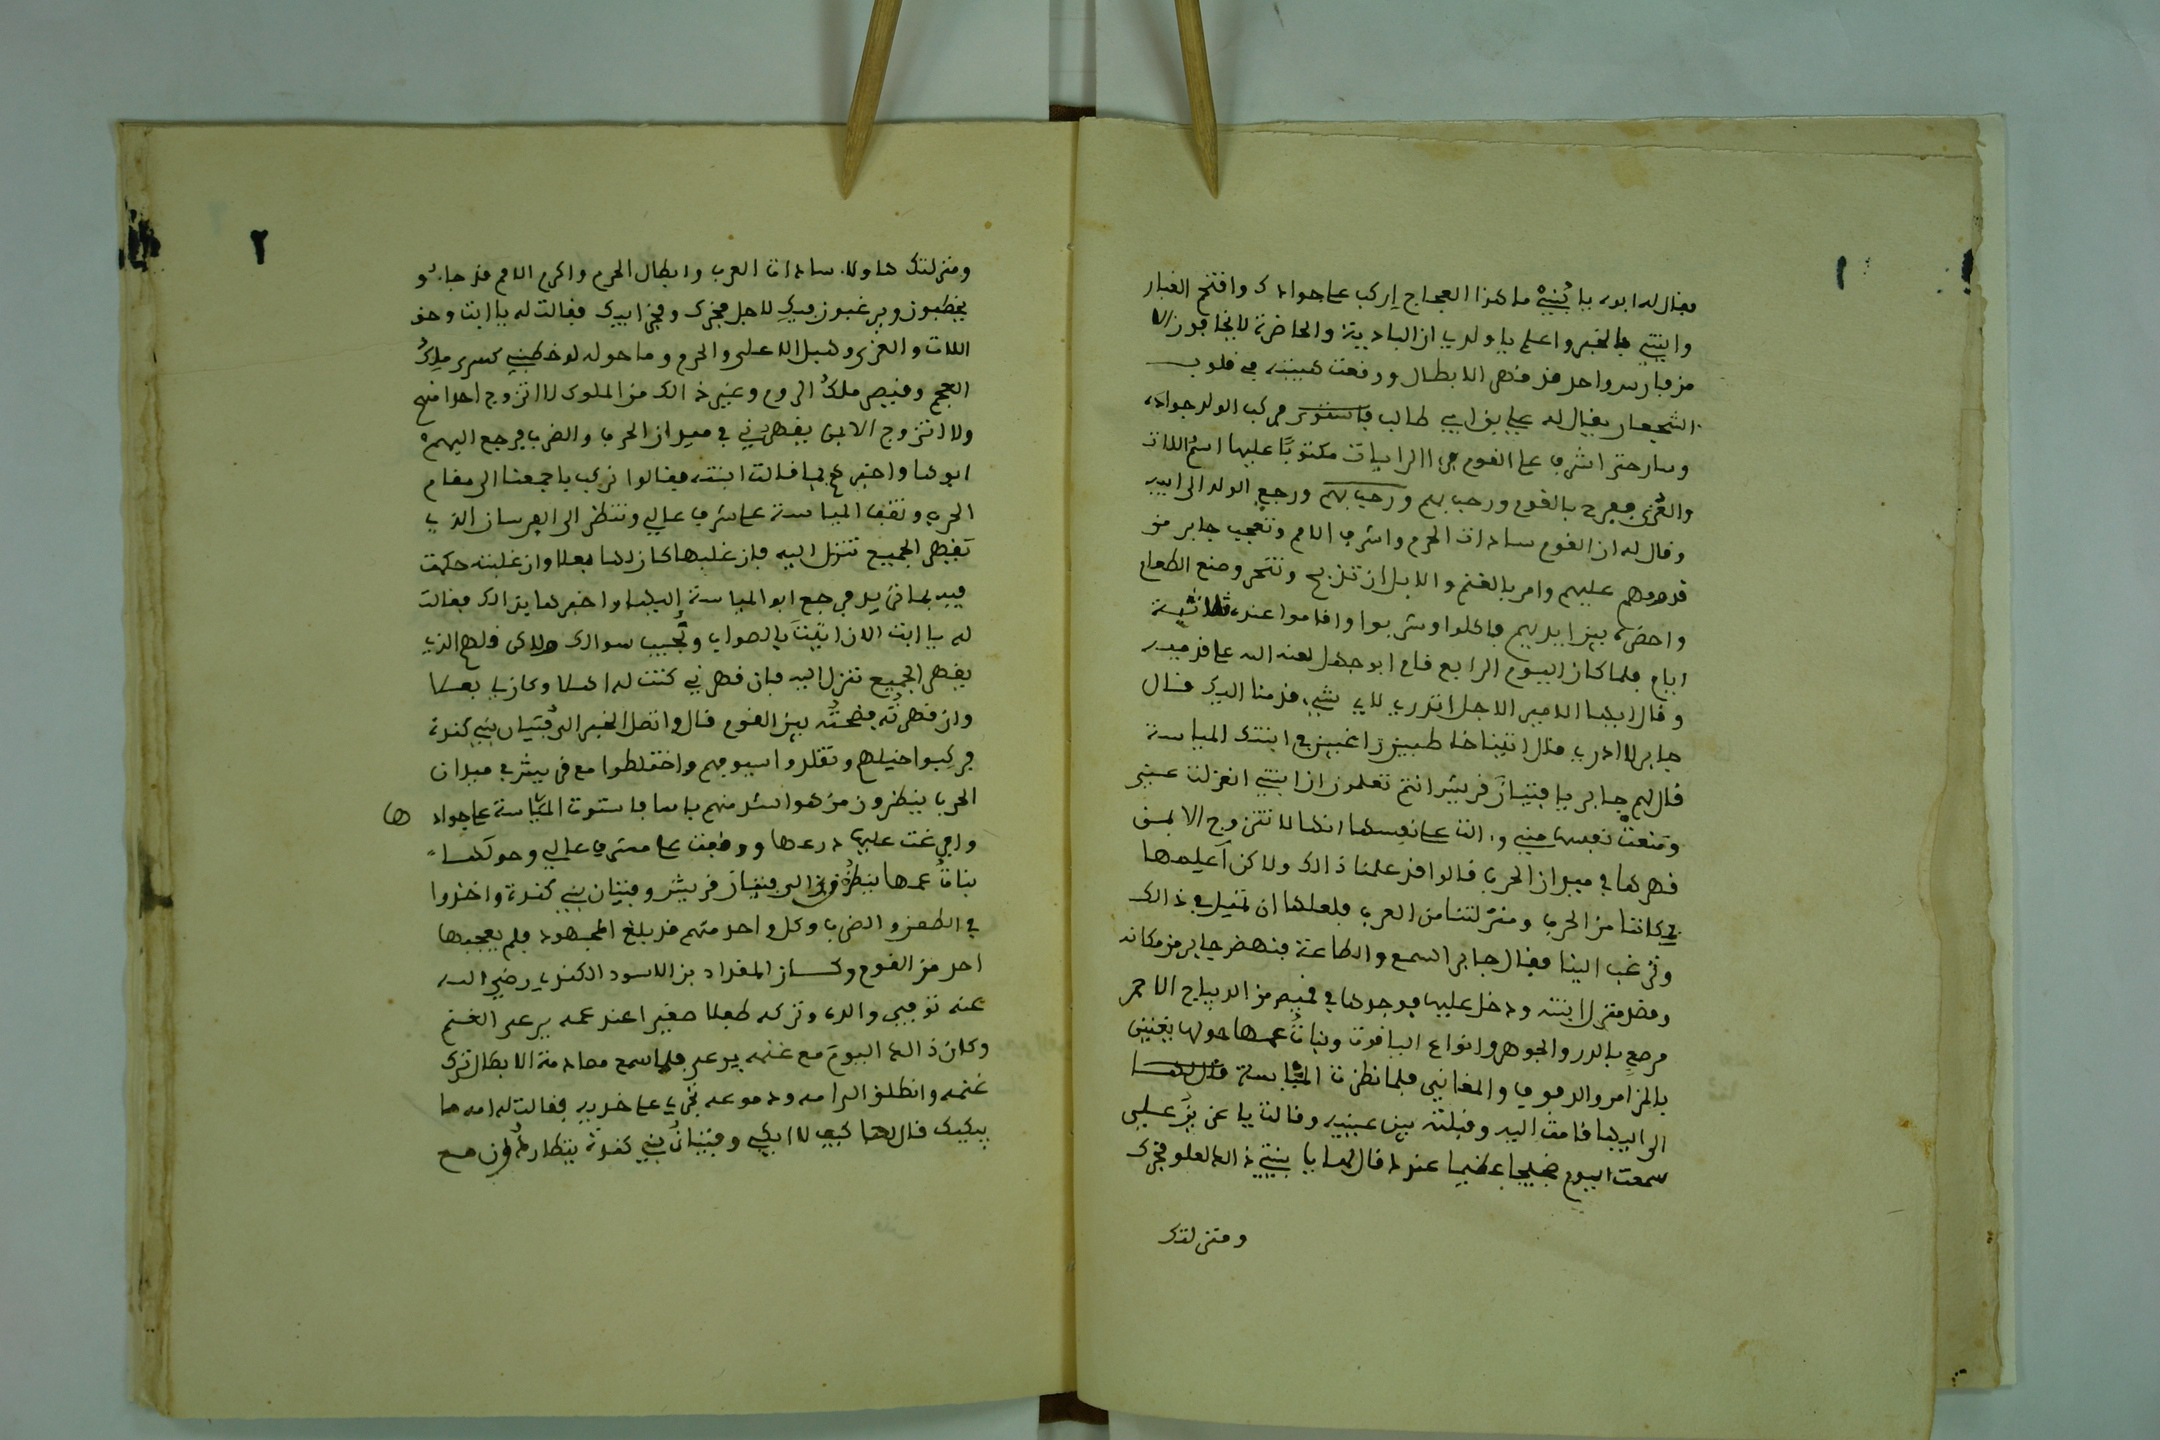 ١
فقال له ابوه يا بُنَيْه ما هذا العجاج اركب على جوادك واقتحم الغبار
وايتني بالخبر واعلم يا ولدي ان البادية والحاضرة لا يخافون الا
من فارس واحد قد قهر الابطال ووقعت هيبته في قلوب
الشجعان يقال له علي بن ابي طالب فركب الولد جواده
وسار حتى اشرف على القوم فرا الرايات مكتوبًا عليها اسم اللات
والعُزى ففرح بالقوم ورحب بهم ورجع الولد الى ابيه
وقال له ان القوم سادات الحرم واشرف الامم وتعجب جابر من
قدومهم عليهم وامر بالغنم والابل ان تذبح وتنحر وصنع الطعام
واحضره بين ايديهم فاكلوا وشربوا واقاموا عنده ثلاثة
ايام فلما كان اليوم الرابع قام ابو جهل لعنه الله على قدميه
وقال ايها الامير الاجل اتدري لاي شيء قدمنا اليك قال
جابر لا ادري قال اتينا خاطبين راغبين في ابنتك المياسة
قال لهم جابر يا فتيان قريش انتم تعلمون ان ابنتي انعزلت عني
ومنعت نفسها مني و الت على نفسها انها لا تتزوج الا بمن
قهرها في ميدان الحرب قالوا قد علمنا ذالك ولاكن أعلمها
بمكاننا من الحرب ومنزلتنا من العرب فلعلها ان تميل في ذالك
وترغب الينا فقال جابر السمع والطاعة فنهض جابر من مكانه
وقصد منزل ابنته ودخل عليها فوجدها في قميص من الديباج الاحمر
مرصع بالدرر والجوهر وانواع الياقوت وبناتُ عمها حولها يغنين
بالمزامر والدفوف والمغاني فلما نظرت المياسة
الى ابيها قامت اليه وقبلته بين عينيه وقالت يا عز بنُ علي
سمعت اليوم ضجيجا عظيما عندك قال لها يا بنيتي ذالك لعلو فخرك
ومنزلتك
٢
ومنزلتك هاولاء سادات العرب وابطال الحرم واكرم الامم قد جاءو
يخطبون ويرغبون فيكِ لاجل فخرك وفخر ابيك فقالت له يا ابت وحق
اللات والعزى وهبل الاعلى والحرم وما حوله لو خطبني كسرى ملِكُ
العجم وقيصر ملكُ الروم وغير ذالك من الملوك لا اتزوج احدا منهم
ولا اتزوج الا بمن يقهرُني في ميدان الحرب والضرب فرجع اليهم
ابوها واخبرهم بما قالت ابنته فقالوا نركب باجمعنا الى مقام
الحرب وتقف المياسة على شرف عالي وتنظر الى الفرسان الذي
يقهر الجميع تنزل اليه فان غلبها كان لها بعلا وان غلبته حكمت
فيه بما تريد فرجع ابو المياسة إليها واخبرها بذالك فقالت
له يا ابت الان اتيت بالصواب ونُجيب سوالك ولاكن قل لهم الذي
يقهر الجميع تنزل اليه فان قهرني كنت له اهلا وكان لي بعلا
وان قهرتُه فضحتُه بين القوم قال واتصل الخبر الى فتيان بني كندة
فركبوا خيلهم وتقلدوا سيوفهم واختلطوا مع قريش في ميدان
الحرب ينظرون من هو اشد منهم باسا فاستوت المياسة على جواد ها
وافرغت عليها درعها ووقفت على مشرف عالي وحولها
بناتُ عمها ينظرُون الى فتيان قريش وفتيان بني كندة واخذوا
في الطعن والضرب وكل واحد منهم قد بلغ المجهود فلم يعجبها
احد من القوم وكان المقداد بن الاسود الكندي رضي الله
عنه توفي والده وتركه طفلا صغيرا عند عمه يرعى الغنم
وكان ذالك اليوم مع غنمه يرعى فلما سمع مصادمة الابطال ترك
غنمه وانطلق الى امه ودموعه تجري على خديه فقالت له امه ما
يبكيك قال لها كيف لا ابكي وفتيانُ بني كندة يتطاردُون مع